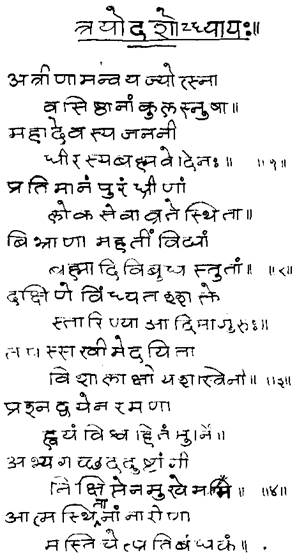 त्रयोदशोऽध्यायः॥
अत्रीणामन्वयज्योत्स्ना
वसिष्ठानांकुलस्नुषा॥
महादेवस्यजननी
धीरस्यब्रह्मवेदिनः॥ ॥१॥
प्रतिमानंपुरंध्रीणां
लोकसेवाव्रतेस्थिता॥
बिभ्राणामहतींविद्यां
ब्रह्मादिविबुधस्तुतां॥ ॥२॥
दक्षिणेविंध्यतश्शक्ते
स्तारिण्याआदिमागुरुः॥
तपस्सखीमेदयिता
विशालाक्षीयशस्विनी॥ ॥३॥
प्रश्नद्वयेनरमणा
ह्वयंविश्वहितंमुनिं॥
अभ्यगच्छददुष्टांगी
निक्षिप्तेनमुखेमम॥ ॥४॥
आत्मस्थितानांनारीणा
मस्तिचेत्प्रतिबंधकं।